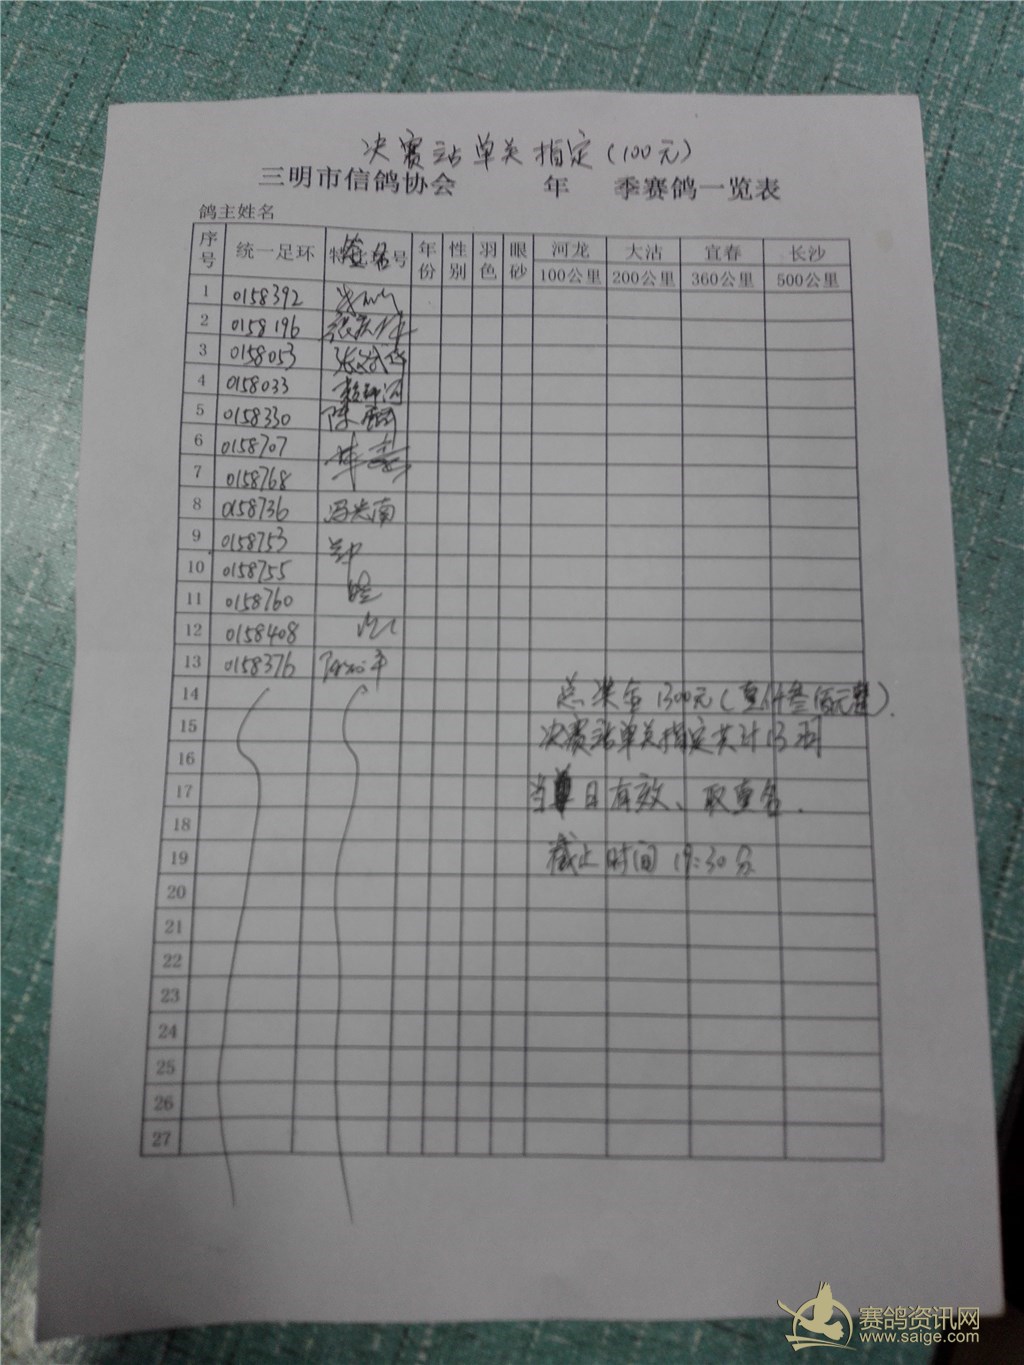 决赛站单关指定(100元)
三明市信鸽协会 年 季赛鸽一览表
鸽主姓名
序号 统一足环 签名 年份 性别 羽色 眼砂 河龙 大沽 宜春 长沙
100公里 200公里 360公里 500公里
1 0158392
2 0158196
3 0158053
4 0158033
5 0158330 陈
6 0158707
7 0158768
8 0158736 冯光南
9 0158753
10 0158755
11 0158760
12 0158408
13 0158376
14 总奖金1300元(壹仟叁佰元整).
15 决赛站单关指定共计13羽
16
17 当日有效、取壹名.
18
19 截止时间 19:30分
20
21
22
23
24
25
26
27
赛鸽资讯网
www.saige.com